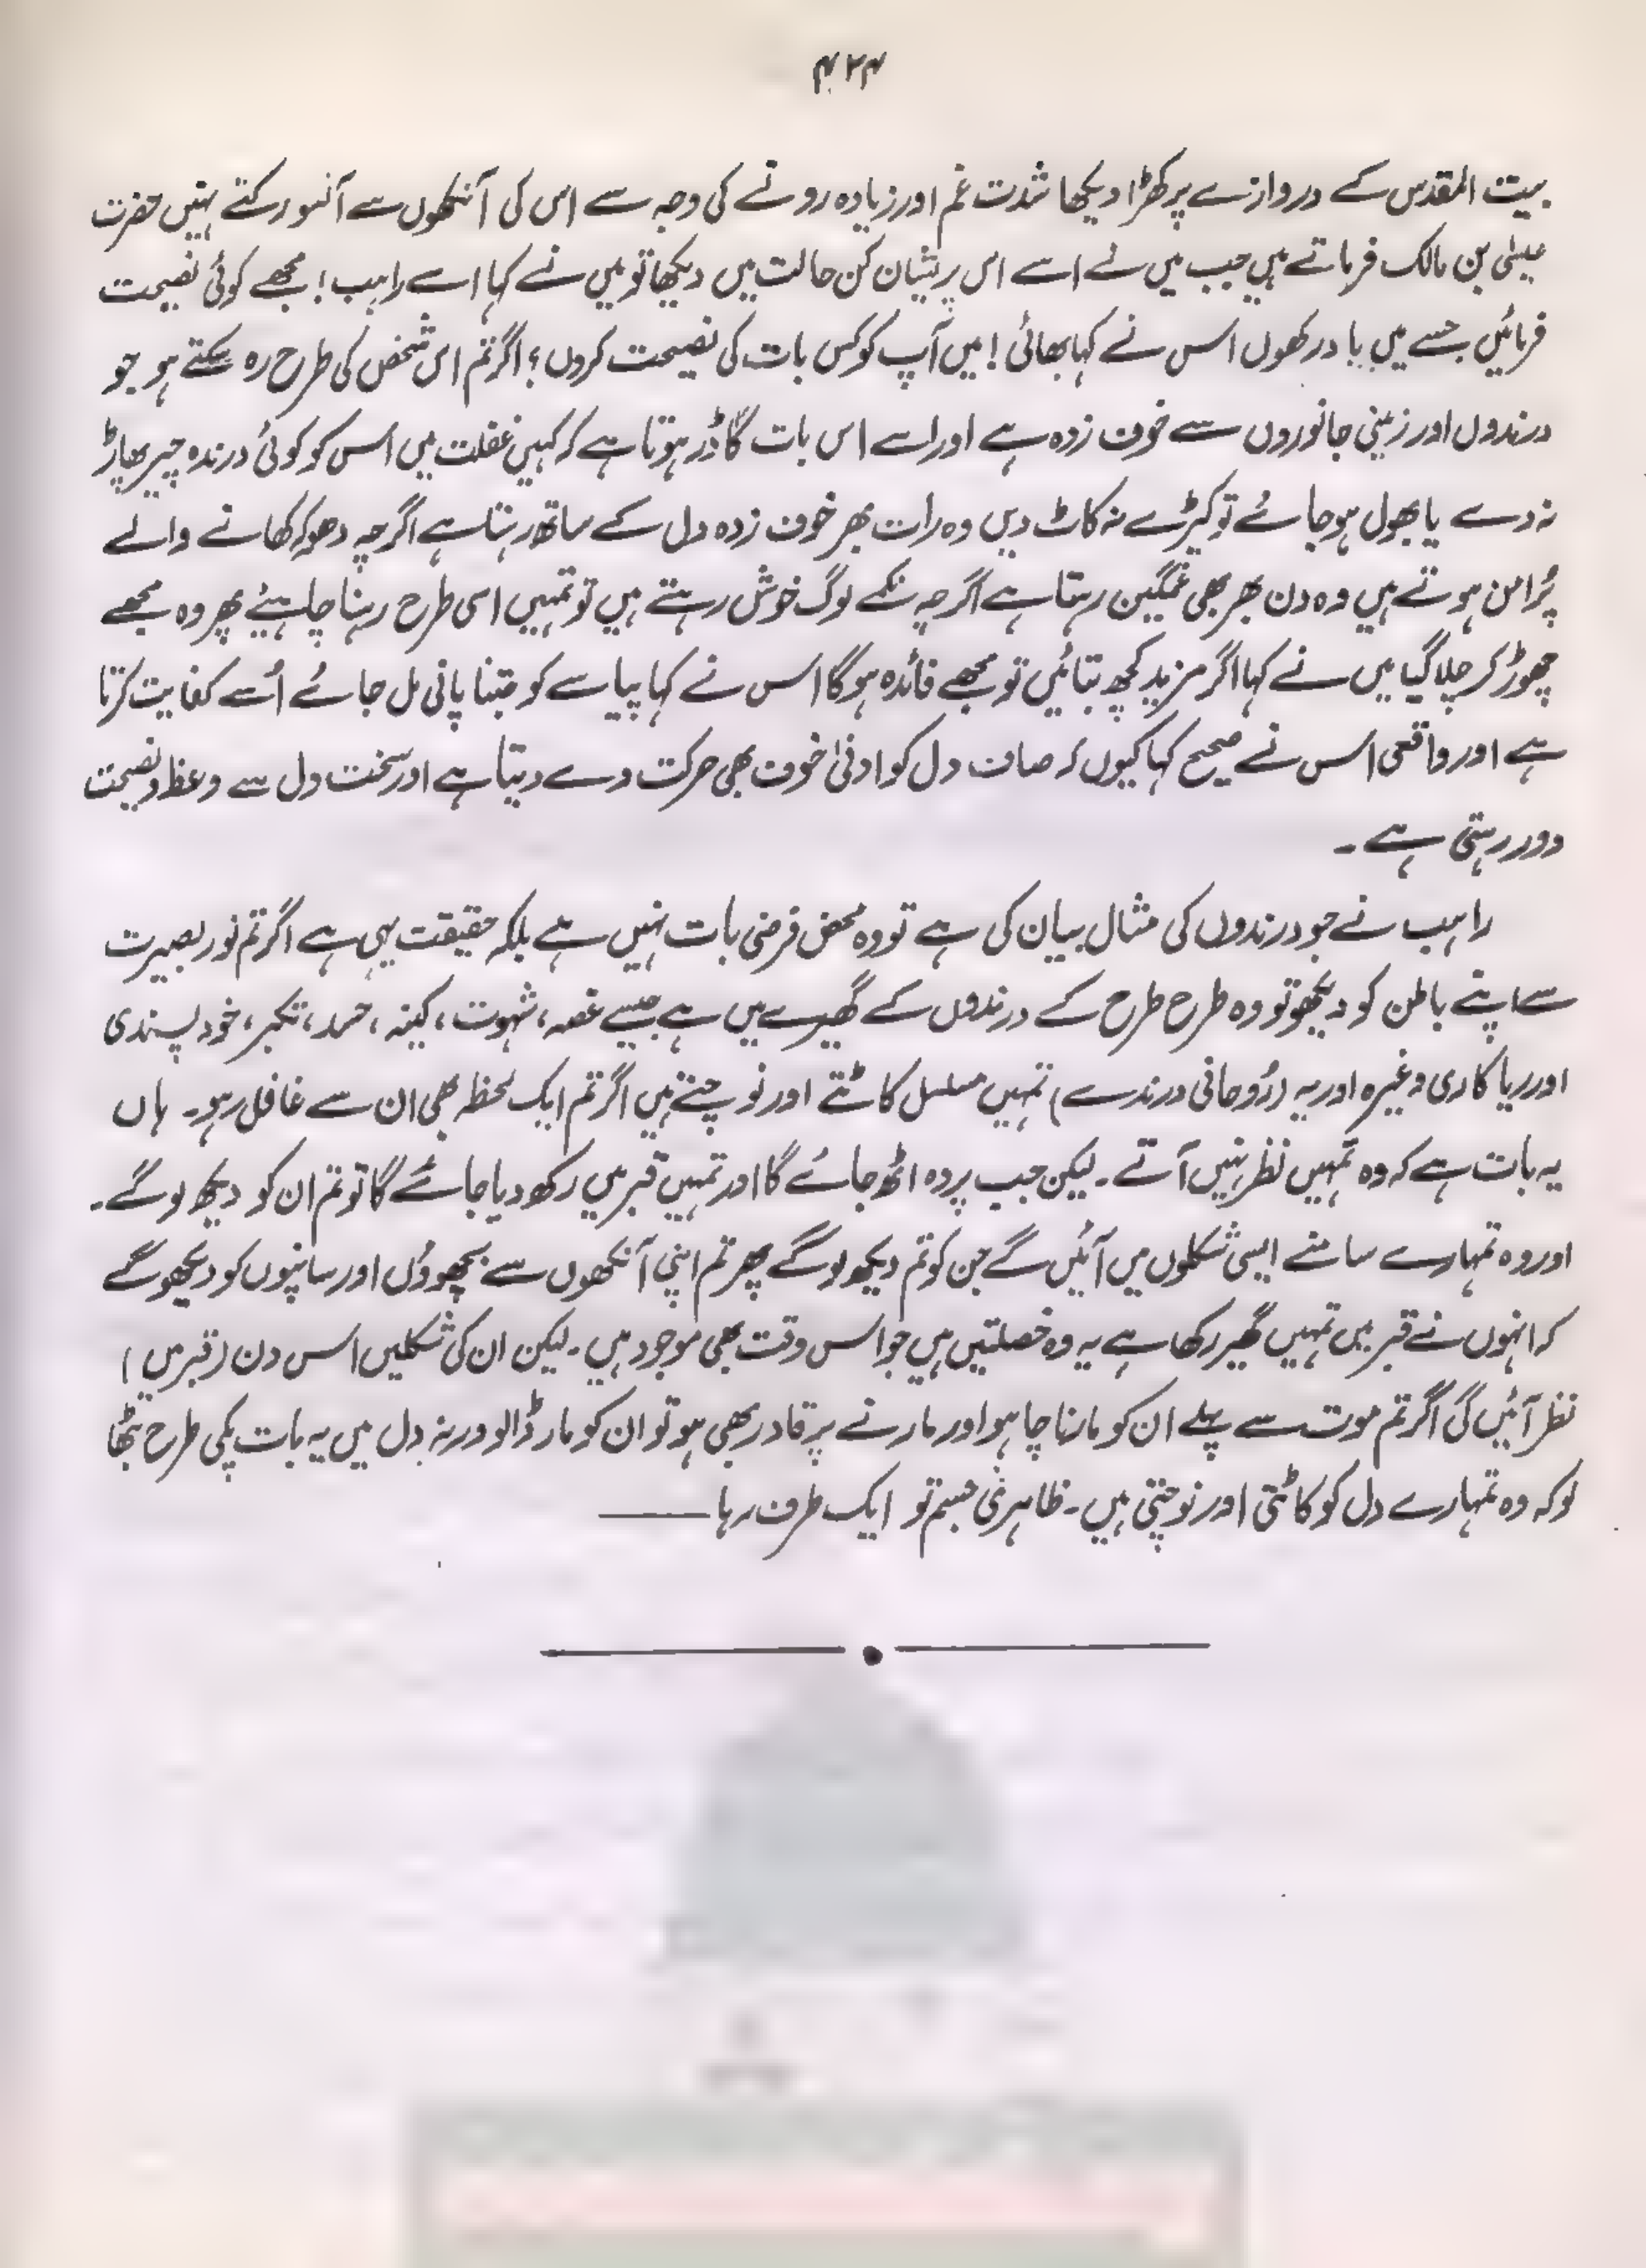 ۴۲۴
بیت المقدس کے دروازے پر کھڑا دیکھا شدت غم اور زیادہ رونے کی وجہ سے اس کی آنکھوں سے آنسو رکتے نہیں حضرت
عیسٰی بن مالک فرماتے ہیں جب میں نے اسے اس پریشان کن حالت میں دیکھا تو میں نے کہا اے راہب! مجھے کوئی نصیحت
فرمائیں جسے میں یاد رکھوں اس نے کہا بھائی! میں آپ کو کس بات کی نصیحت کروں؟ اگر تم اس شخص کی طرح رہ سکتے ہو جو
درندوں اور زمینی جانوروں سے خوف زدہ ہے اور اسے اس بات کا ڈر ہوتا ہے کہ کہیں غفلت میں اس کو کوئی درندہ چیر پھاڑ
نہ دے یا بھول ہو جائے تو کیڑے نہ کاٹ دیں وہ رات بھر خوف زدہ دل کے ساتھ رہتا ہے اگرچہ دھوکہ کھانے والے
پُرامن ہوتے ہیں وہ دن بھر بھی غمگین رہتا ہے اگرچہ نکمے لوگ خوش رہتے ہیں تو تمہیں اسی طرح رہنا چاہیئے پھر وہ مجھے
چھوڑ کر چلا گیا میں نے کہا اگر مزید کچھ بتائیں تو مجھے فائدہ ہوگا اس نے کہا پیاسے کو جتنا پانی مل جائے اُسے کفایت کرتا
ہے اور واقعی اس نے صحیح کہا کیوں کہ صاف دل کو ادنیٰ خوف بھی حرکت دے دیتا ہے اور سخت دل سے وعظ و نصیحت
دور رہتی ہے۔
راہب نے جو درندوں کی مثال بیان کی ہے تو وہ محض فرضی بات نہیں ہے بلکہ حقیقت یہی ہے اگر تم نور بصیرت
سے اپنے باطن کو دیکھو تو وہ طرح طرح کے درندوں کے گھیرے میں ہے جیسے غصہ، شہوت، کینہ، حسد، تکبر، خود پسندی
اور ریا کاری وغیرہ اور یہ (رُوحانی درندے) تمہیں مسلسل کاٹتے اور نوچتے ہیں اگر تم ایک لحظہ بھی ان سے غافل رہو۔ ہاں
یہ بات ہے کہ وہ تمہیں نظر نہیں آتے۔ لیکن جب پردہ اٹھ جائے گا اور تمہیں قبر میں رکھ دیا جائے گا تو تم ان کو دیکھ لو گے۔
اور وہ تمہارے سامنے ایسی شکلوں میں آئیں گے جن کو تم دیکھ لو گے پھر تم اپنی آنکھوں سے بچھوؤں اور سانپوں کو دیکھو گے
کہ انہوں نے قبر میں تمہیں گھیر رکھا ہے یہ وہ خصلتیں ہیں جو اس وقت بھی موجود ہیں۔ لیکن ان کی شکلیں اس دن (قبر میں)
نظر آئیں گی اگر تم موت سے پہلے ان کو مارنا چاہو اور مارنے پر قادر بھی ہو تو ان کو مار ڈالو ورنہ دل میں یہ بات پکی طرح بٹھا
لو کہ وہ تمہارے دل کو کاٹتی اور نوچتی ہیں۔ ظاہری جسم تو ایک طرف رہا